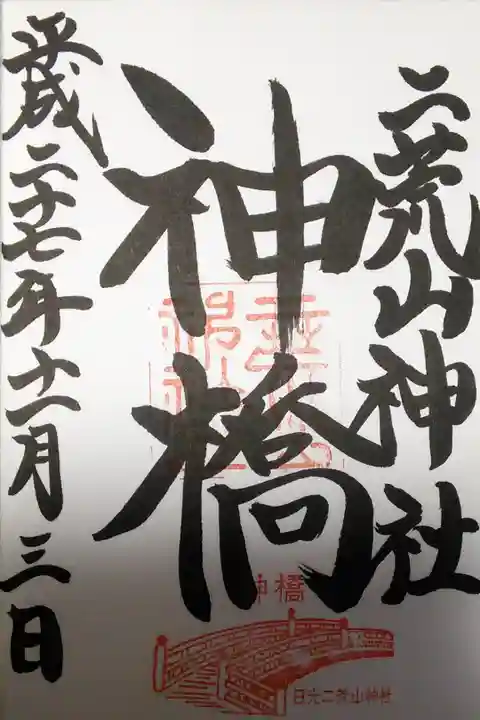 二荒山神社
神橋
平成二十七年十一月三日
二荒山神社
神橋
日光二荒山神社